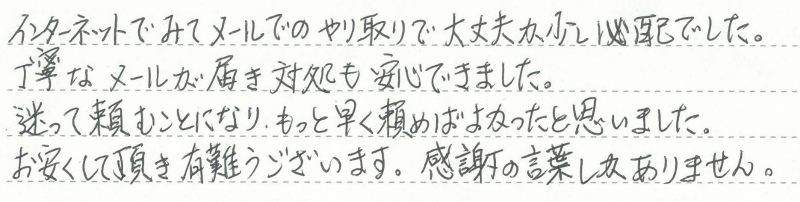 インターネットでみてメールでのやり取りで大丈夫か少し心配でした。
丁寧なメールが届き対処も安心できました。
迷って頼むことになり、もっと早く頼めばよかったと思いました。
お安くして頂き有難うございます。感謝の言葉しかありません。